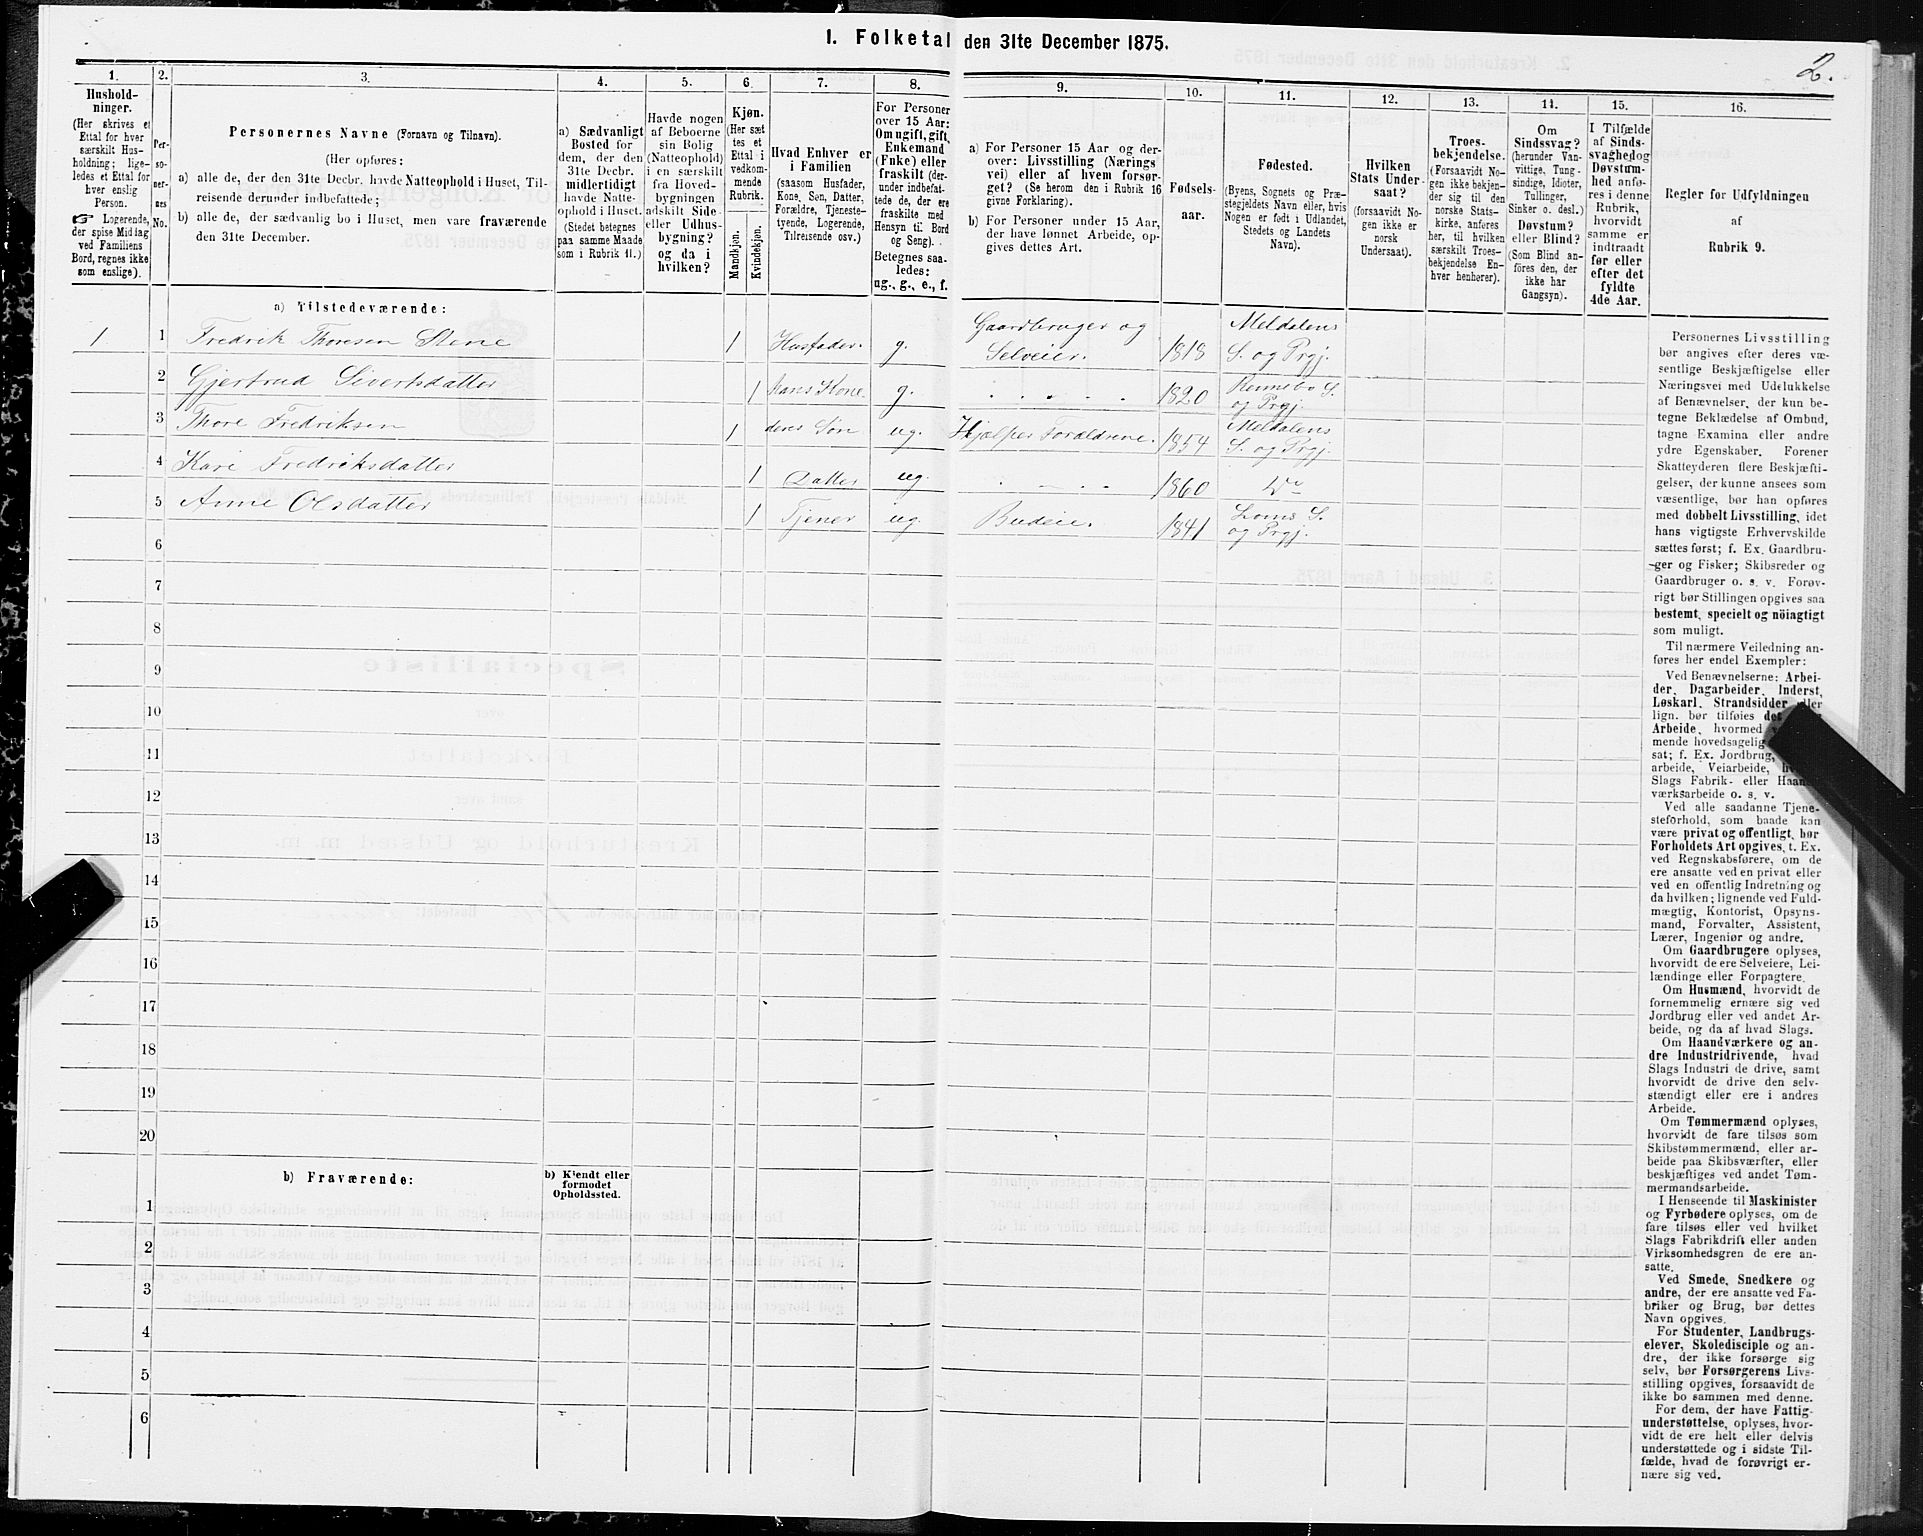 I. Folketal den 31te December 1875.
2.
1.
2.
3.
4.
5.
6.
7.
8.
9.
10.
11.
12.
13.
14.
15.
16.
Hushold-
ninger.
(Her skrives et
Ettal for hver
særskilt Hus-
holdning; lige-
ledes et Ettal for
hver enslig
Person.
☞ Logerende,
der spise Middag
ved Familiens
Bord, regnes ikke
som enslige).
Per-
so-
ner-
nes
No.
Personernes Navne (Fornavn og Tilnavn).
(Her opføres:
a) alle de, der den 31te Decbr. havde Natteophold i Huset, Til-
reisende derunder indbefattede;
b) alle de, der sædvanlig bo i Huset, men vare fraværende
den 31te December.
a) Sædvanligt
Bosted for
dem, der den
31te Decbr.
midlertidigt
havde Natte-
ophold i Huset.
(Stedet betegnes
paa samme Maade
som i Rubrik 11.)
Havde nogen
af Beboerne
sin Bolig
(Natteophold)
i en særskilt
fra Hoved-
bygningen
adskilt Side-
eller Udhus-
bygning?
og da i
hvilken?
Kjøn.
(Her sæt
tes et
Ettal i
vedkom-
mende
Rubrik.
Mandkjøn.
Kvindekjøn.
Hvad Enhver er
i Familien
(saasom Husfader,
Kone, Søn, Datter,
Forældre, Tjeneste-
tyende, Logerende,
Tilreisende osv.)
For Personer
over 15 Aar:
Om ugift, gift,
Enkemand
(Enke) eller
fraskilt (der-
under indbefat-
tede de, der ere
fraskilte med
Hensyn til Bord
og Seng).
Betegnes saa-
ledes:
ug., g., e., f.
a) For Personer 15 Aar og der-
over: Livsstilling (Nærings
vei) eller af hvem forsør-
get? (Se herom den i Rubrik 16
givne Forklaring).
b) For Personer under 15 Aar,
der have lønnet Arbeide, op-
gives dettes Art.
Fødsels-
aar.
Fødested.
(Byens, Sognets og Præ-
stegjeldets Navn eller, hvis
Nogen er født i Udlandet,
Stedets og Landets
Navn).
Hvilken
Stats Under-
saat?
(forsaavidt No-
gen ikke er
norsk
Undersaat).
Troes-
bekjendelse.
(Forsaavidt No-
gen ikke bekjen-
der sig til den
norske Stats-
kirke, anføres
her, til hvilken
særskilt Troes-
bekjendelse En-
hver henhører).
Om
Sindssvag?
(herunder Van-
vittige, Tung-
sindige, Idioter,
Tullinger,
Sinker o. desl.)
Døvstum?
eller Blind?
(Som Blind an-
føres den, der
ikke har
Gangsyn).
I Tilfælde
af Sinds-
svaghed og
Døvstum-
hed anfø-
res i denne
Rubrik,
hvorvidt
samme er
indtraadt
før eller
efter det
fyldte
4de Aar.
Regler for Udfyldningen
af
Rubrik 9.
a) Tilstedeværende:
1 1 Fredrik Thoresen Stene 1 Husfader g. Gaardbruger og Selveier. 1818 Meldalens S. og Prgj.
2 Gjertrud Sivertsdatter 1 hans Kone g. " 1820 Rennebo S. og Prgj.
3 Thore Fredriksen 1 deres Søn ug. Hjælper Forældrene. 1854 Meldalens S. og Prgj.
4 Kari Fredriksdatter 1 Datter ug. " 1860 Do
5 Anne Olsdatter 1 Tjener ug. Budeie. 1841 Loms S. og Prgj.
6
7
8
9
10
11
12
13
14
15
16
17
18
19
20
b) Fraværende:
b) Kjendt eller
formodet
Opholdssted.
1
2
3
4
5
6
Personernes Livsstilling
bør angives efter deres væ-
sentlige Beskjæftigelse eller
Næringsvei med Udelukkelse
af Benævnelser, der kun be-
tegne Beklædelse af Ombud,
tagne Examina eller andre
ydre Egenskaber. Forener
Skatteyderen flere Beskjæfti-
gelser, der kunne ansees som
væsentlige, bør han opføres
med dobbelt Livsstilling, idet
hans vigtigste Erhvervskilde
sættes først; f. Ex. Gaardbru-
ger og Fisker; Skibsreder og
Gaardbruger o. s. v. Forøv-
rigt bør Stillingen opgives saa
bestemt, specielt og nöiagtigt
som muligt.
Til nærmere Veiledning an-
føres her endel Exempler:
Ved Benævnelserne: Arbei-
der, Dagarbeider, Inderst,
Løskarl, Strandsidder eller
lign. bør tilføies det
Arbeide, hvormed
mende hovedsagelig
sat; f. Ex. Jordbrug,
arbeide, Veiarbeide,
Slags Fabrik- eller Haand-
værksarbeide o. s. v.
Ved alle saadanne Tjene-
steforhold, som baade kan
være privat og offentligt, bør
Forholdets Art opgives, t. Ex.
ved Regnskabsførere, om de
ere ansatte ved en privat eller
ved en offentlig Indretning og
da hvilken; lignende ved Fuld-
mægtig, Kontorist, Opsyns-
mand, Forvalter, Assistent,
Lærer, Ingeniør og andre.
Om Gaardbrugere oplyses,
hvorvidt de ere Selveiere, Lei-
lændinge eller Forpagtere.
Om Husmænd, hvorvidt de
fornemmelig ernære sig ved
Jordbrug eller ved andet Ar-
beide, og da af hvad Slags.
Om Haandværkere og an-
dre Industridrivende, hvad
Slags Industri de drive, samt
hvorvidt de drive den selv-
stændigt eller ere i andres
Arbeide.
Om Tømmermænd oplyses,
hvorvidt de fare tilsøs som
Skibstømmermænd, eller ar-
beide paa Skibsværfter, eller
beskjæftiges ved andet Tøm-
mermandsarbeide.
I Henseende til Maskinister
og Fyrbødere oplyses, om de
fare tilsøs eller ved hvilket
Slags Fabrikdrift eller anden
Virksomhedsgren de ere an-
satte.
Ved Smede, Snedkere og
andre, der ere ansatte ved Fa-
briker og Brug, bør dettes
Navn opgives.
For Studenter, Landbrugs-
elever, Skoledisciple og an-
dre, der ikke forsørge sig
selv, bør Forsørgerens Livs-
stilling opgives, forsaavidt de
ikke bo sammen med denne.
For dem, der have Fattig-
understøttelse, oplyses, hvor-
vidt de ere helt eller delvis
understøttede og i sidste Til-
fælde, hvad de forøvrigt er-
nære sig ved.